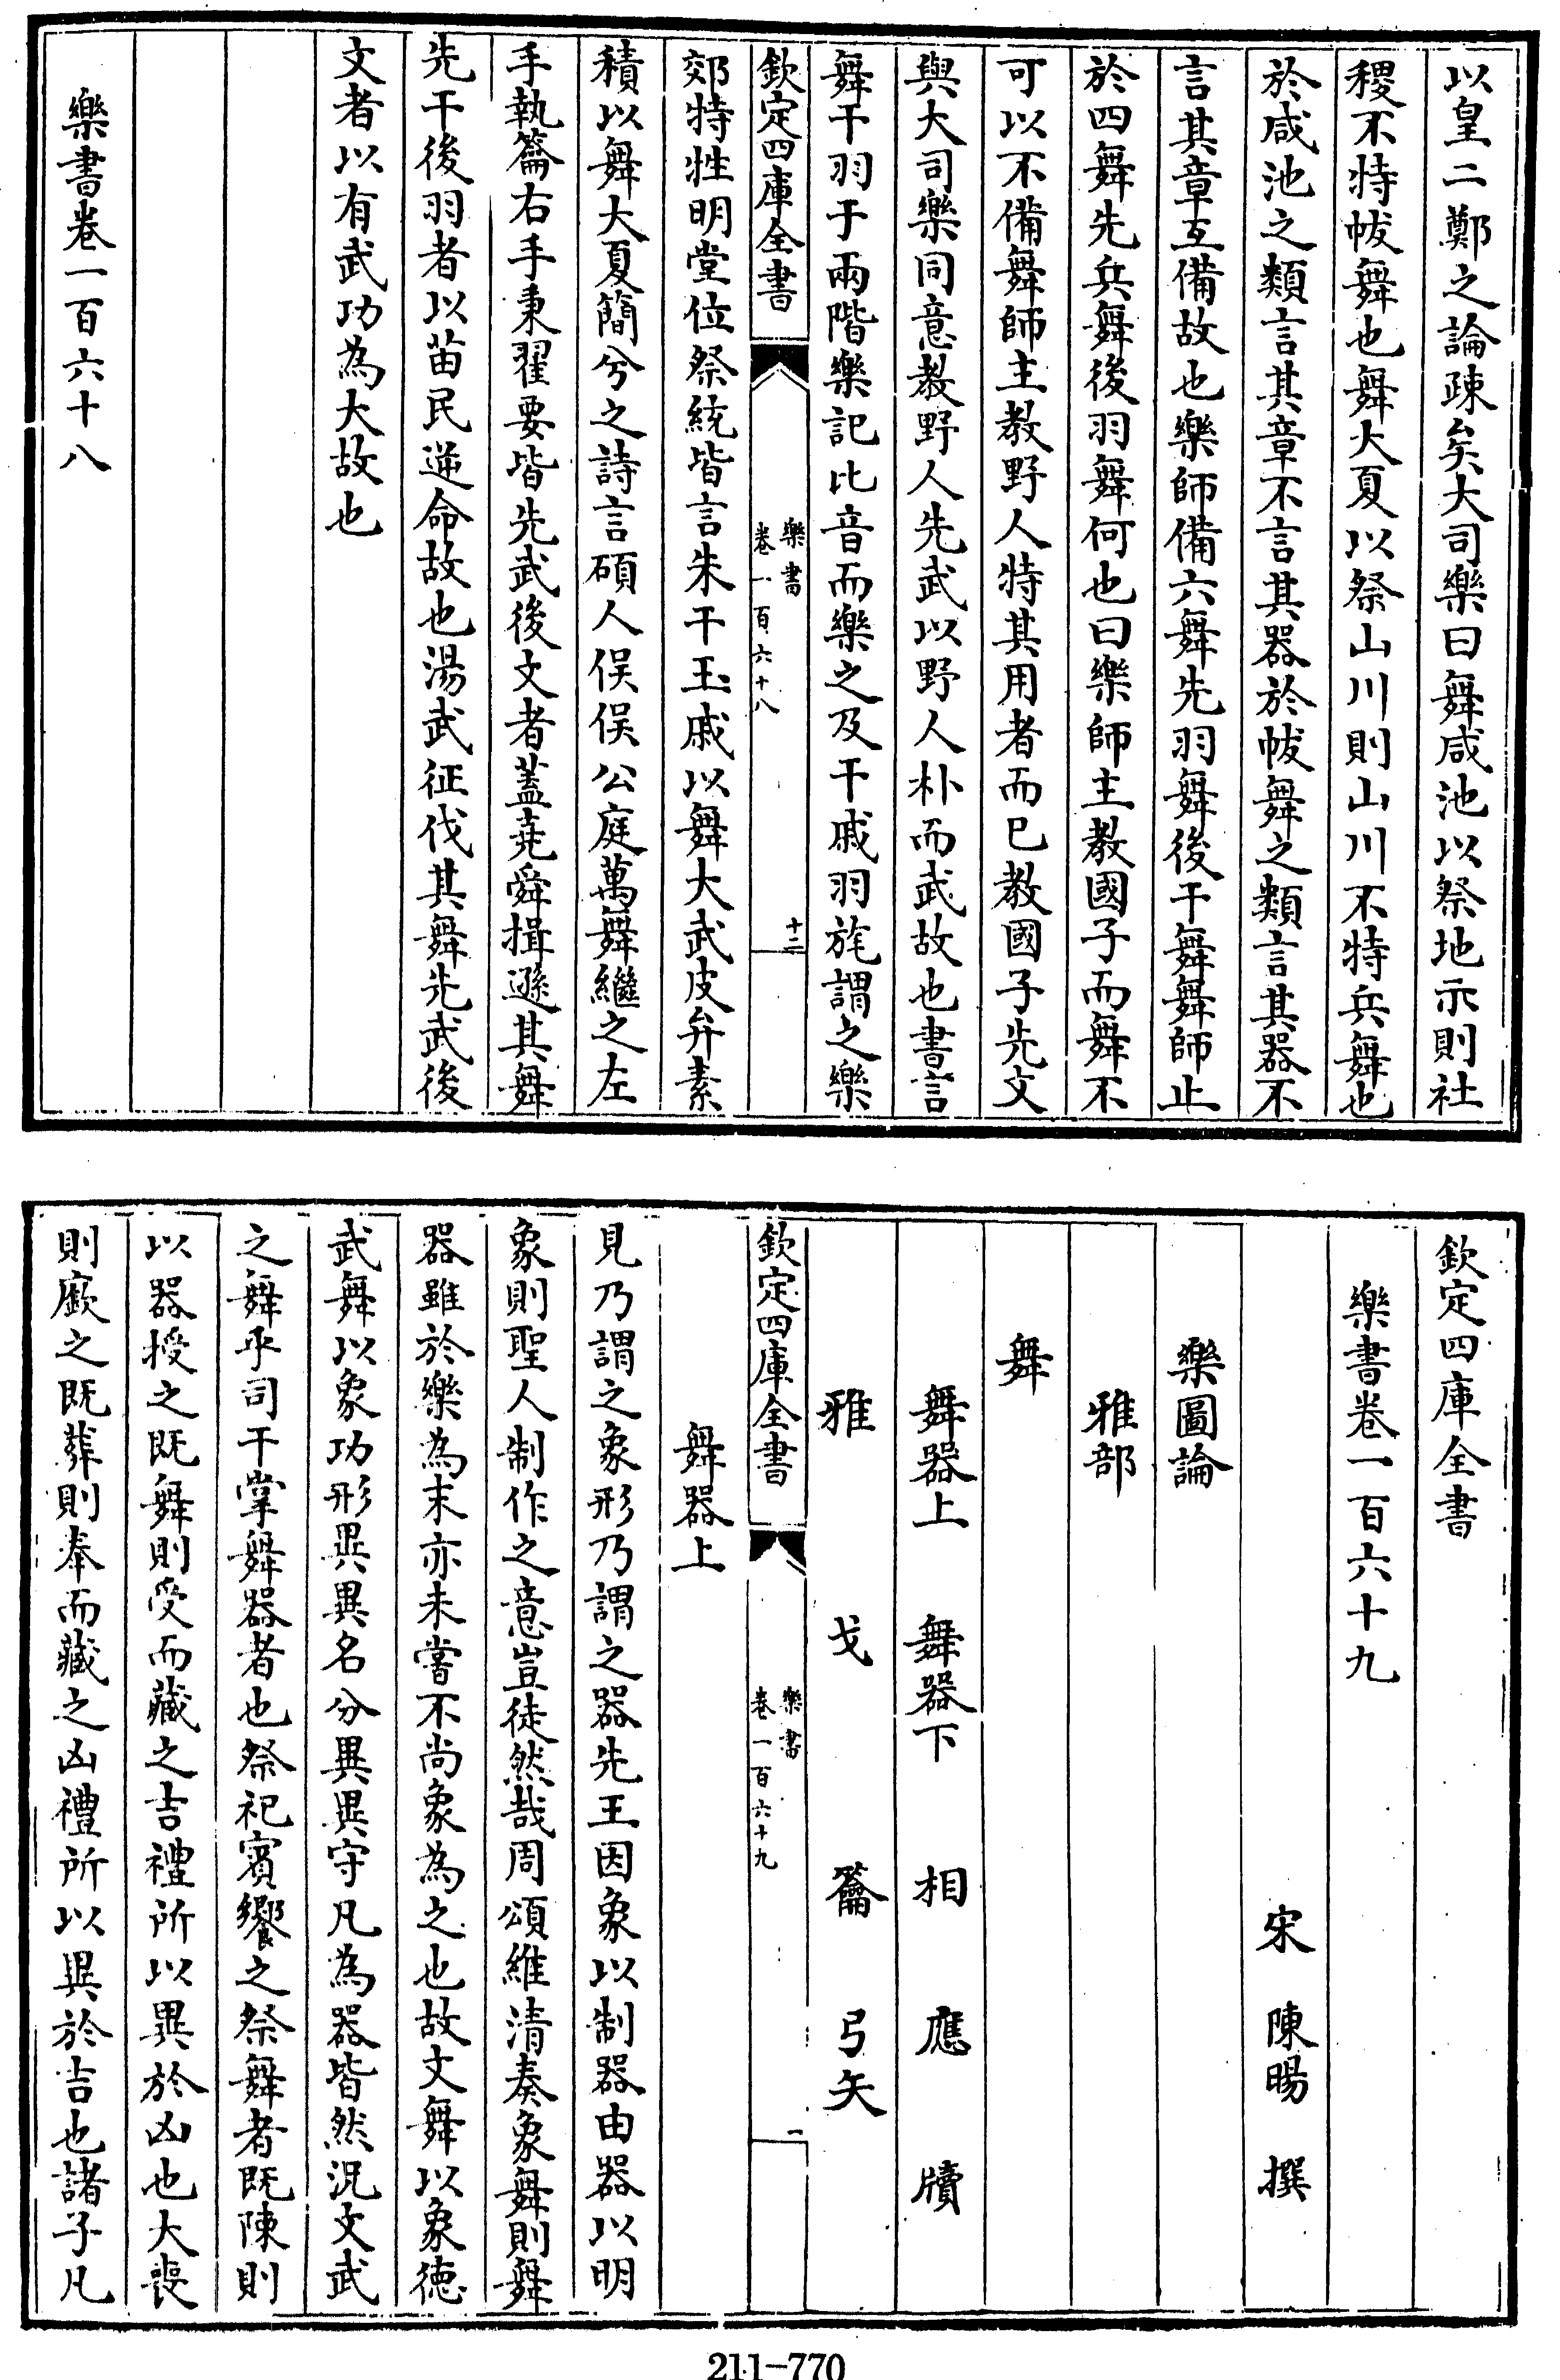 以皇二鄭之論疎矣大司樂曰舞咸池以祭地示則社
稷不特帗舞也舞大夏以祭山川則山川不特兵舞也
於咸池之類言其章不言其器於帗舞之類言其器不
言其章互備故也樂師備六舞先羽舞後干舞舞師止
於四舞先兵舞後羽舞何也曰樂師主教國子而舞不
可以不備舞師主教野人特其用者而已教國子先文
與大司樂同意教野人先武以野人朴而武故也書言
舞干羽于兩階樂記比音而樂之及干戚羽旄謂之樂
欽定四庫全書
樂書
卷一百六十八
十二
郊特牲明堂位祭統皆言朱干玉戚以舞大武皮弁素
積以舞大夏簡兮之詩言碩人俁俁公庭萬舞繼之左
手執籥右手秉翟要皆先武後文者蓋堯舜揖遜其舞
先干後羽者以苗民逆命故也湯武征伐其舞先武後
文者以有武功為大故也
樂書卷一百六十八
欽定四庫全書
樂書卷一百六十九
宋 陳暘 撰
樂圖論
雅部
舞
舞器上 舞器下 相 應 牘
雅 戈 籥 弓矢
欽定四庫全書
樂書
卷一百六十九
一
舞器上
見乃謂之象形乃謂之器先王因象以制器由器以明
象則聖人制作之意豈徒然哉周頌維清奏象舞則舞
器雖於樂為末亦未嘗不尚象為之也故文舞以象德
武舞以象功形異異名分異異守凡為器皆然況文武
之舞乎司干掌舞器者也祭祀賓饗之祭舞者既陳則
以器授之既舞則受而藏之吉禮所以異於凶也大喪
則廞之既葬則奉而藏之凶禮所以異於吉也諸子凡
211-770